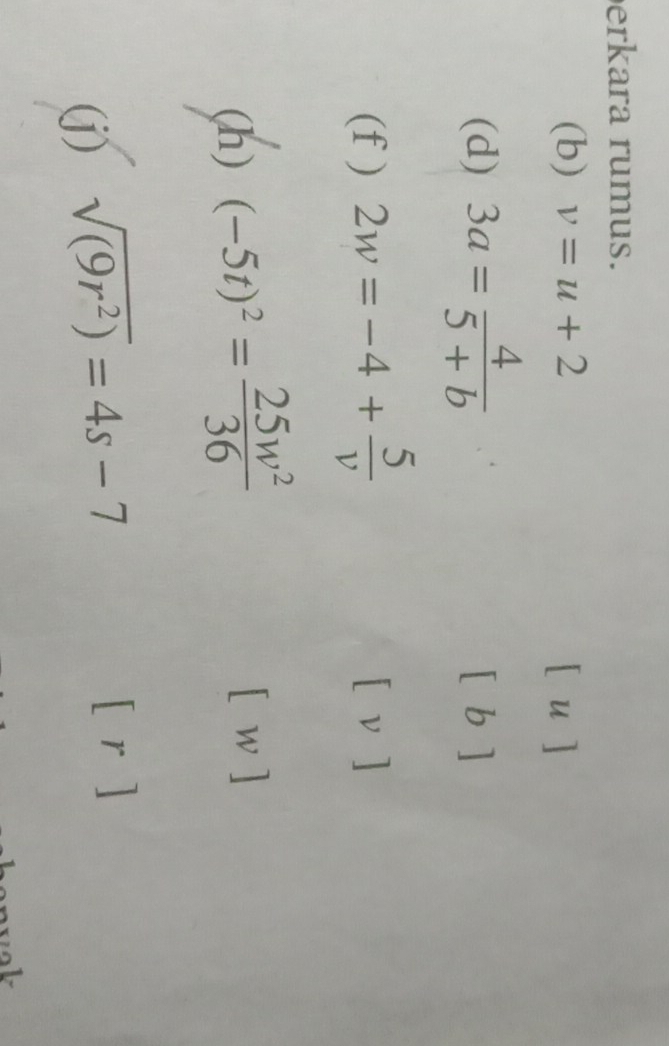 perkara rumus.
(b) v = u + 2 [ u ]
(d) 3a = 4/(5 + b) [ b ]
(f) 2w = −4 + 5/v [ v ]
(h) (−5t)² = 25w²/36 [ w ]
(j) √(9r²) = 4s − 7 [ r ]